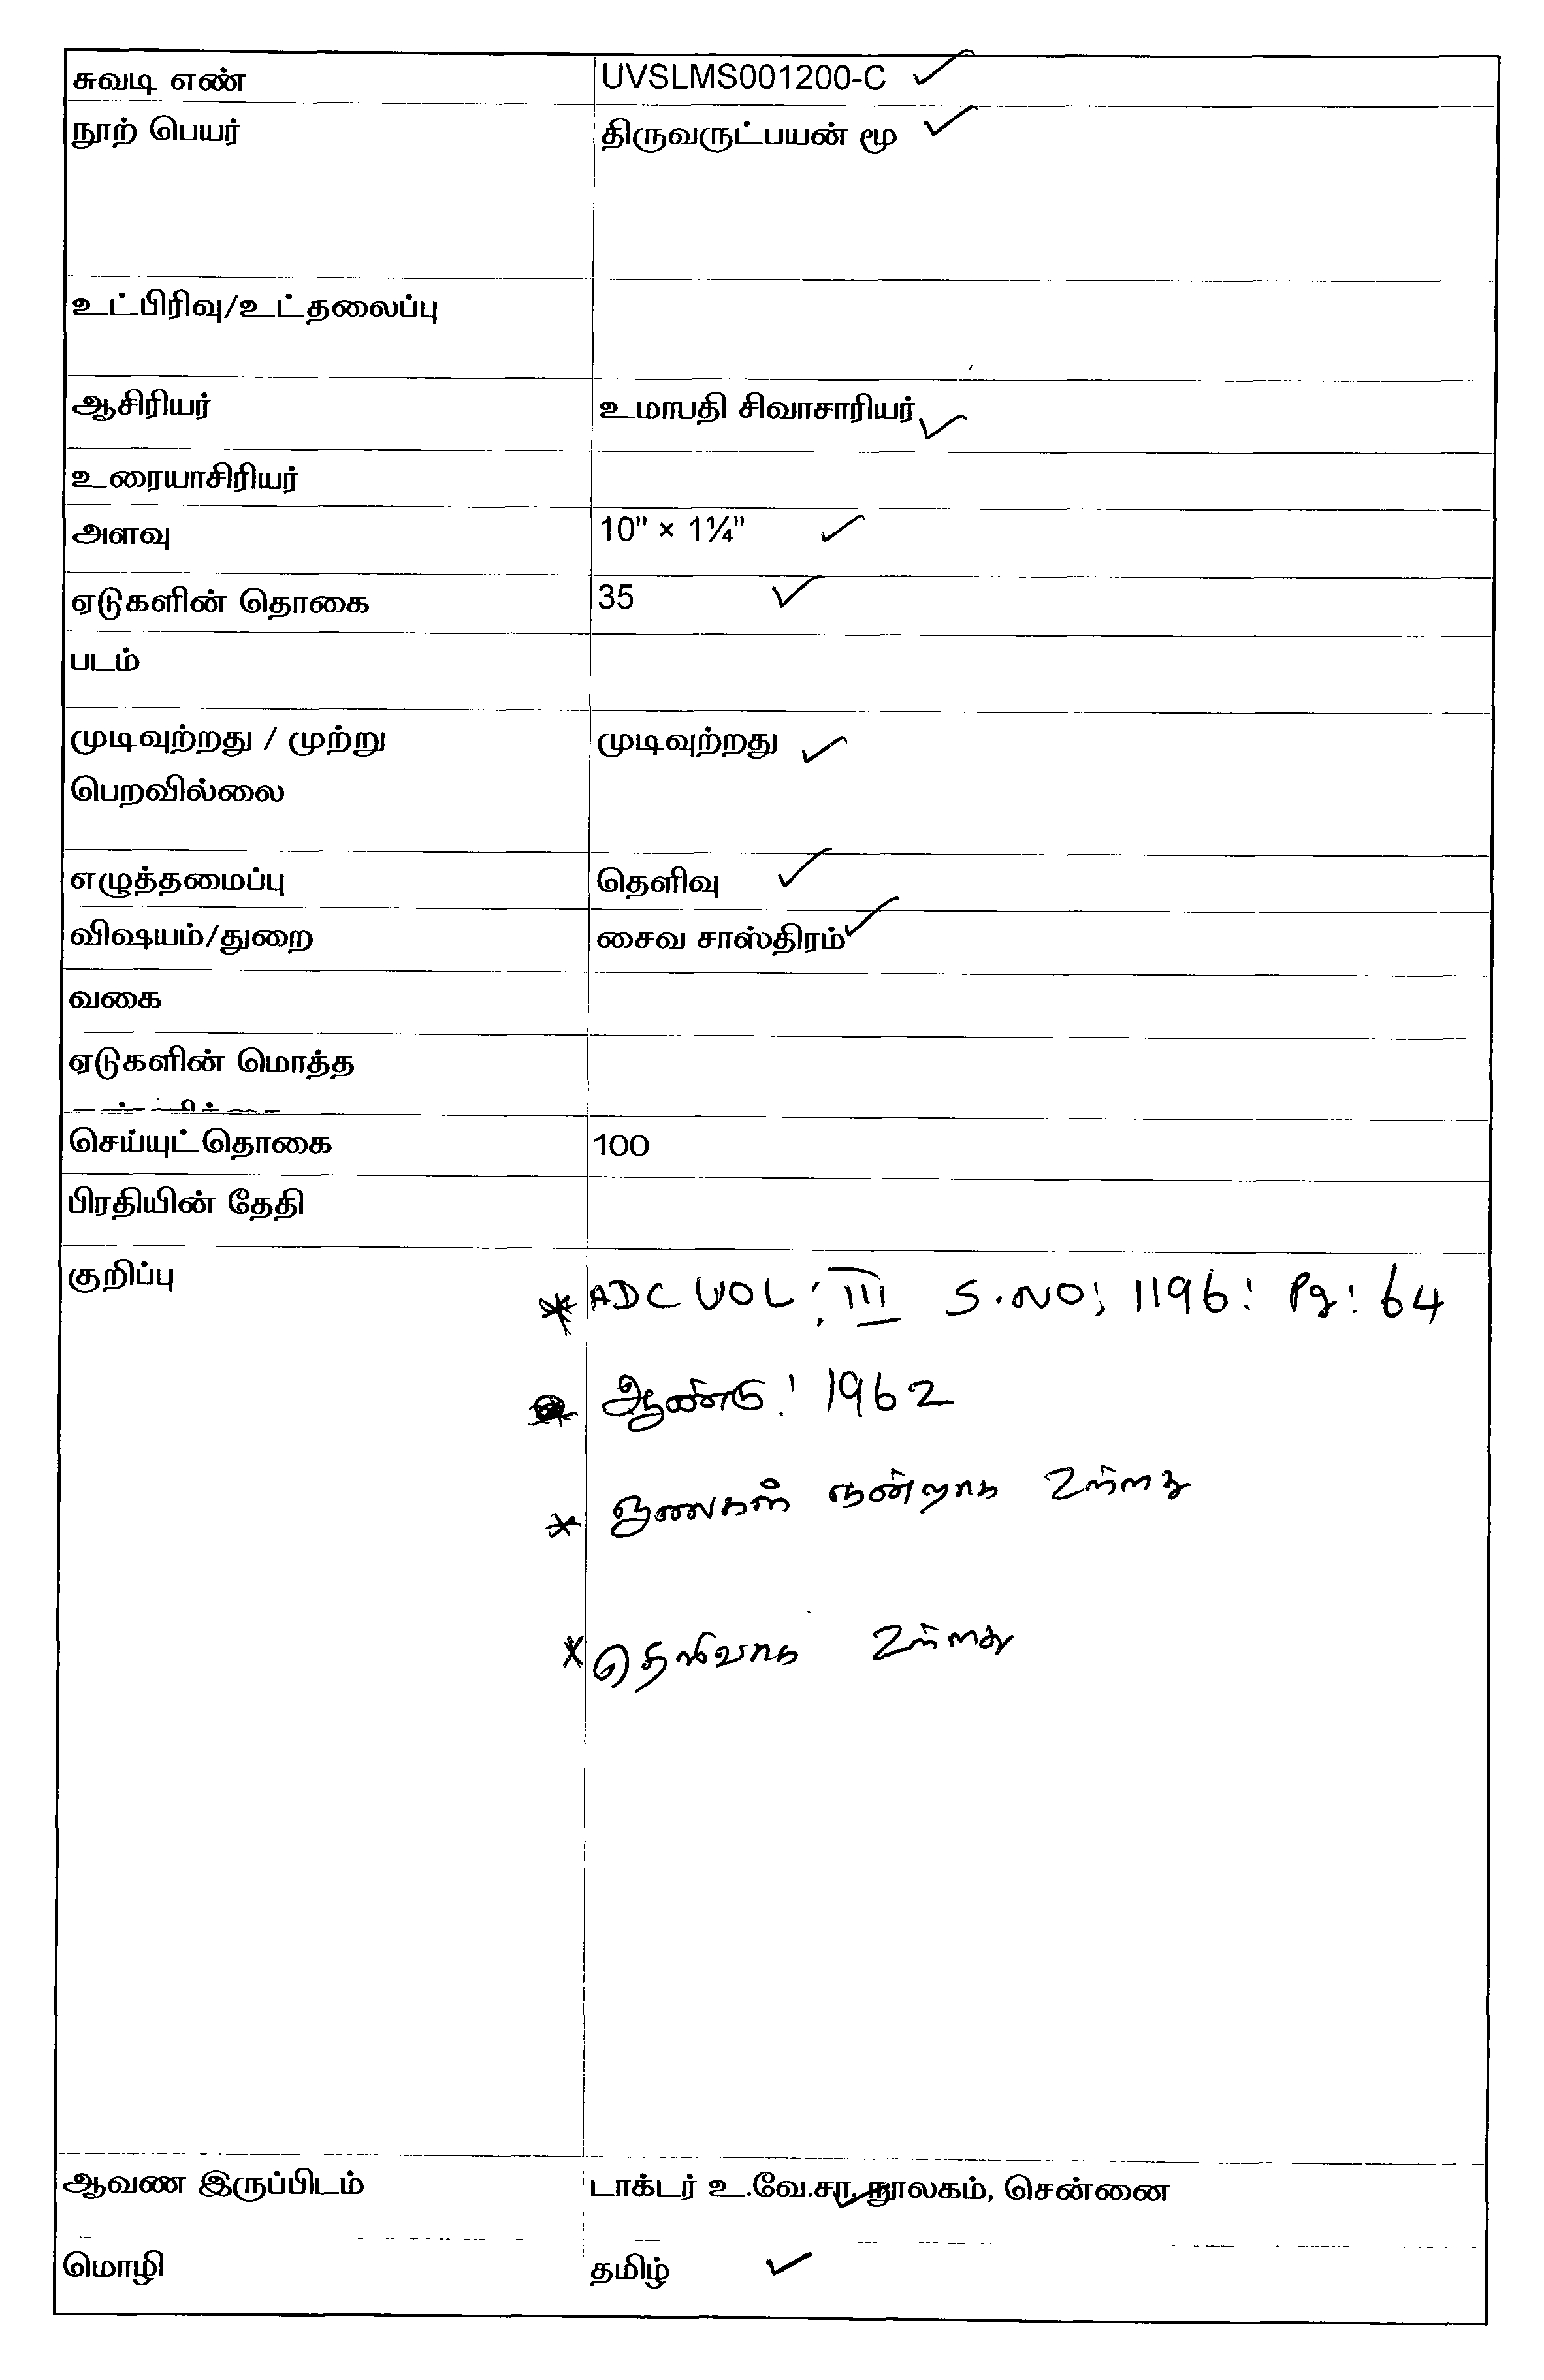 சுவடி எண் UVSLMS001200-C ✓
நூற் பெயர் திருவருட்பயன் மூ ✓
உட்பிரிவு/உட்தலைப்பு
ஆசிரியர் உமாபதி சிவாசாரியர் ✓
உரையாசிரியர்
அளவு 10" × 1¼" ✓
ஏடுகளின் தொகை 35 ✓
படம்
முடிவுற்றது / முற்று முடிவுற்றது ✓
பெறவில்லை
எழுத்தமைப்பு தெளிவு ✓
விஷயம்/துறை சைவ சாஸ்திரம் ✓
வகை
ஏடுகளின் மொத்த
செய்யுட்தொகை 100
பிரதியின் தேதி
குறிப்பு * ADC VOL: III S.NO: 1196: Pg: 64
ஆண்டு: 1962
* நன்றாக உள்ளது
* தெளிவாக உள்ளது
ஆவண இருப்பிடம் டாக்டர் உ.வே.சா. நூலகம், சென்னை ✓
மொழி தமிழ் ✓